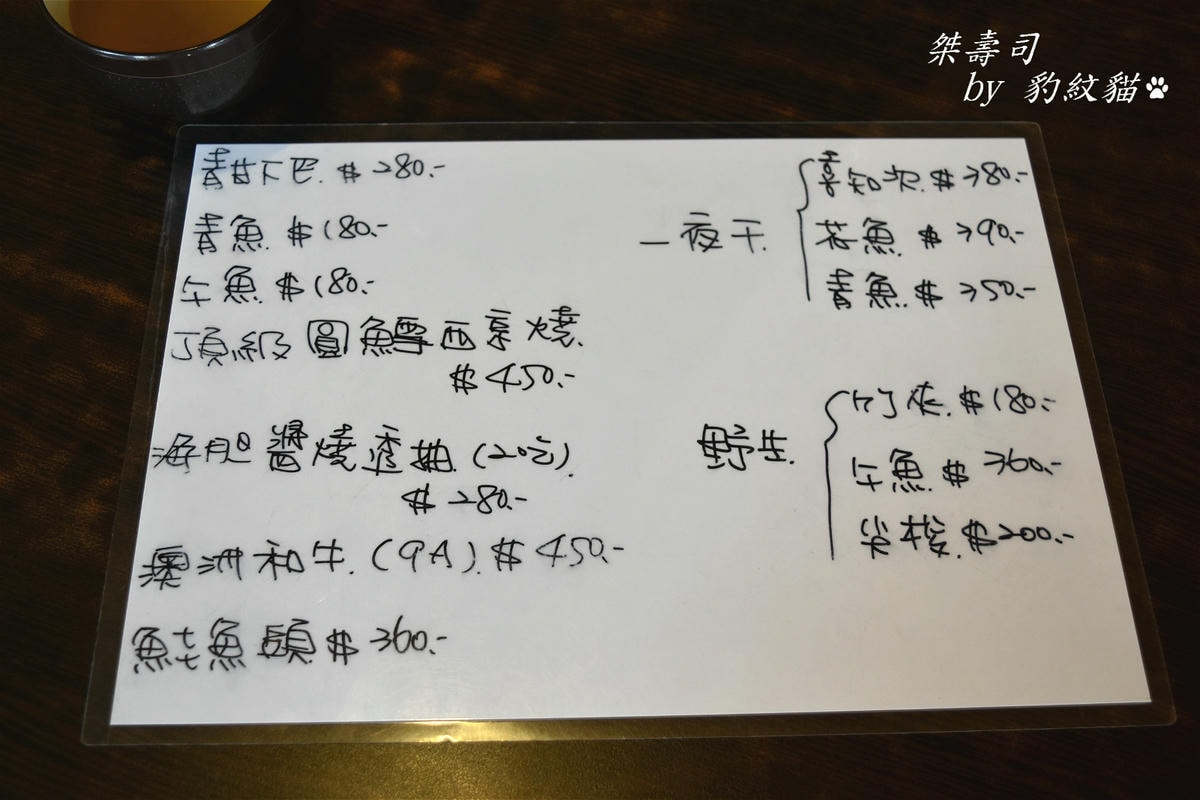 桀壽司
by 豹紋貓
青甘下巴. $280.-
青魚. $180.-
午魚. $180.-
頂級圓鱈西京燒.
$450.-
海胆醬燒透抽. (20吃).
$280.-
澳洲和牛. (9A). $450.-
鮭魚頭 $360.-
一夜干.
喜知次. $280.-
花魚. $290.-
青魚. $250.-
野生.
竹夾. $180.-
午魚. $360.-
尖梭. $200.-